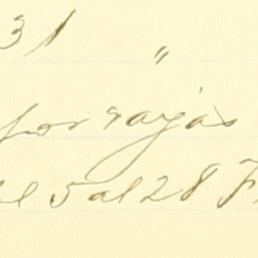 31 "
por rayas
el 5 al 28 F